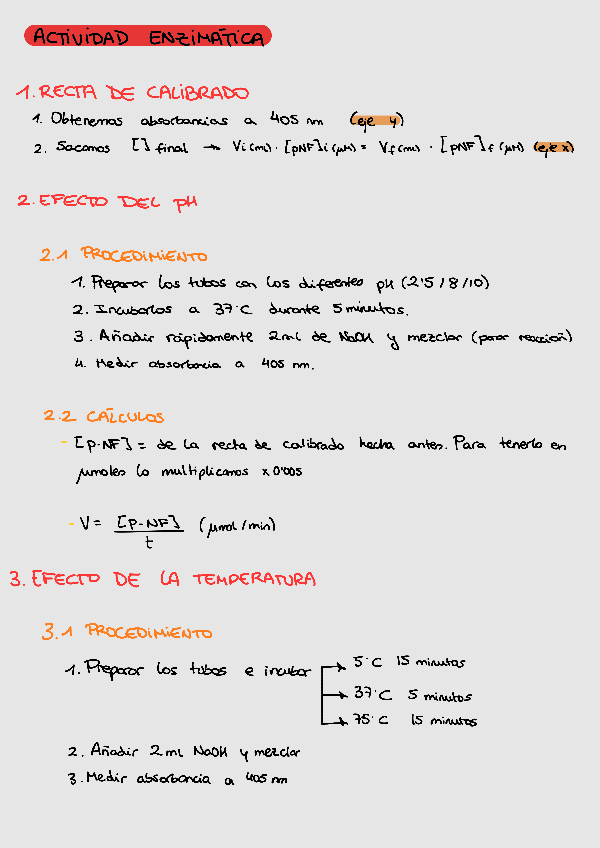 ACTIVIDAD ENZIMÁTICA
1. RECTA DE CALIBRADO
1. Obtenemos absorbancias a 405 nm (eje y)
2. Sacamos [] final → Vi (mL) · [pNF]i (μM) = Vf (mL) · [pNF]f (μM) (eje x)
2. EFECTO DEL pH
2.1 PROCEDIMIENTO
1. Preparar los tubos con los diferentes pH (2'5 / 8 / 10)
2. Incubarlos a 37°C durante 5 minutos.
3. Añadir rápidamente 2mL de NaOH y mezclar (parar reacción)
4. Medir absorbancia a 405 nm.
2.2 CÁLCULOS
- [p-NF] = de la recta de calibrado hecha antes. Para tenerlo en
μmoles lo multiplicamos x 0'005
- V = [P-NF] / t (μmol / min)
3. EFECTO DE LA TEMPERATURA
3.1 PROCEDIMIENTO
1. Preparar los tubos e incubar → 5°C 15 minutos
→ 37°C 5 minutos
→ 75°C 15 minutos
2. Añadir 2mL NaOH y mezclar
3. Medir absorbancia a 405 nm